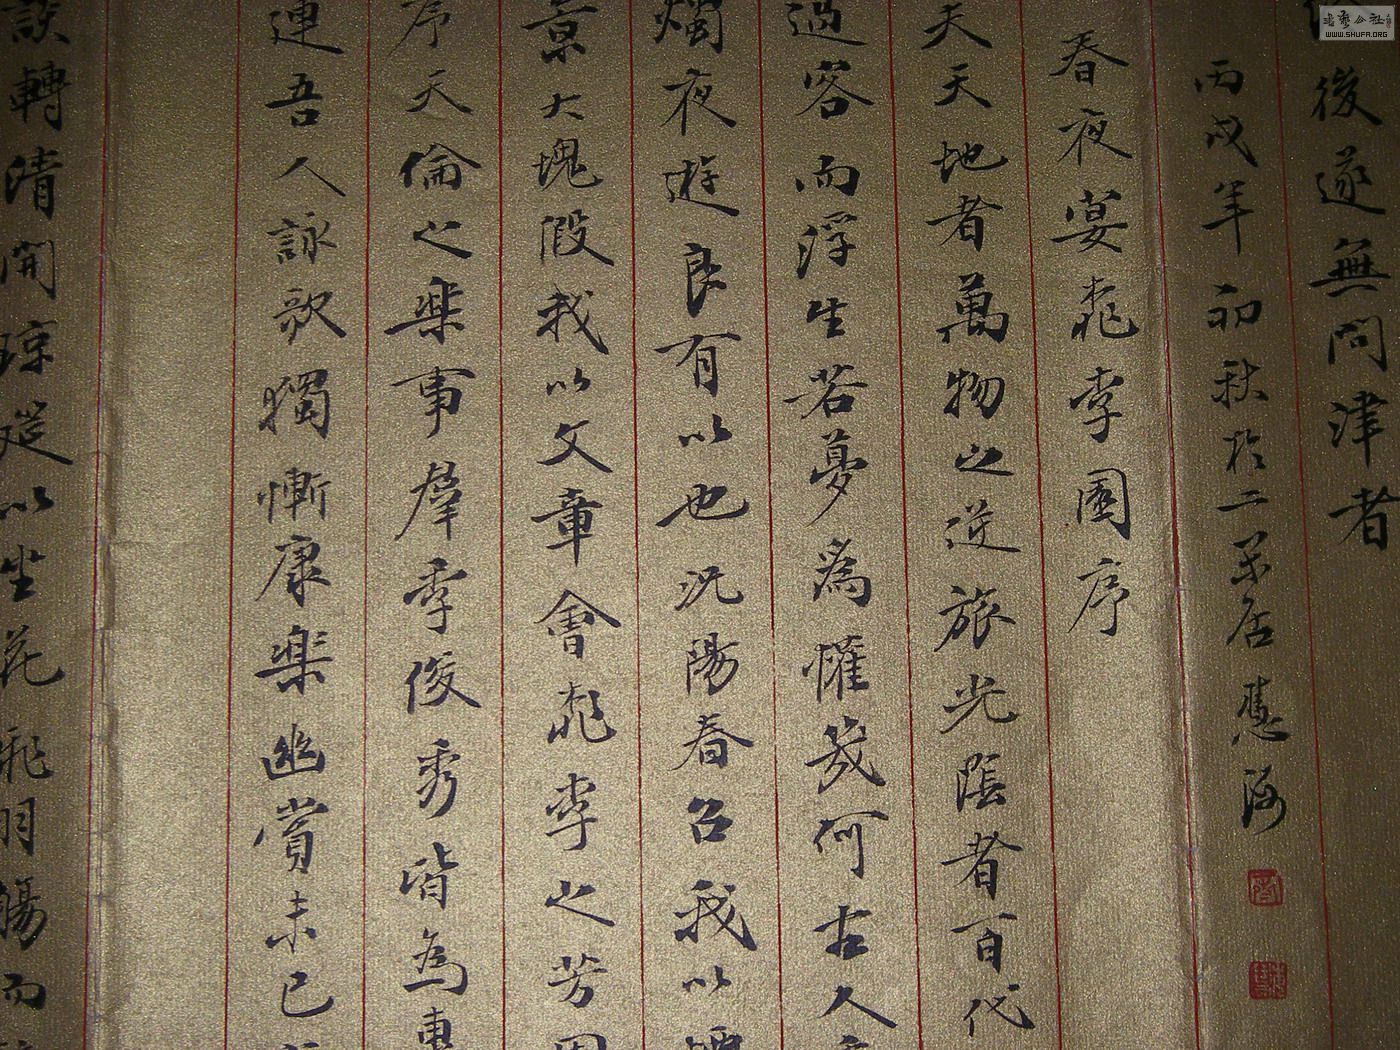 後遂無問津者
丙戌年初秋於二
春夜宴桃李園序
夫天地者萬物之逆旅光陰者百代
過客而浮生若夢為懽幾何古人
燭夜遊良有以也況陽春召我以煙
景大塊假我以文章會桃李之芳園
序天倫之樂事羣季俊秀皆為惠
連吾人詠歌獨慚康樂幽賞未已
談轉清開瓊筵以坐花飛羽觴而
WWW.SHUFA.ORG